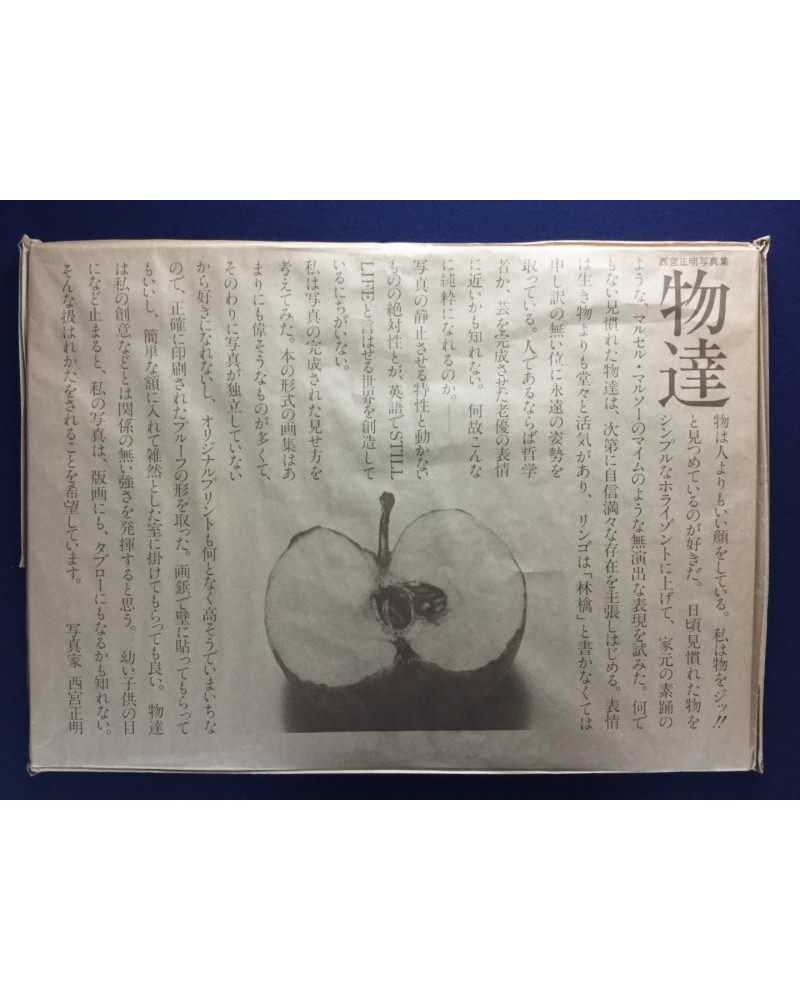 西宮正明写真集
物達
物は人よりもいい顔をしている。私は物をジッ!!
と見つめているのが好きだ。日頃見慣れた物を
シンプルなホライゾントに上げて、家元の素踊の
ような、マルセル・マルソーのマイムのような無演出な表現を試みた。何て
もない見慣れた物達は、次第に自信満々な存在を主張しはじめる。表情
は生き物よりも堂々と活気があり、リンゴは「林檎」と書かなくては
申し訳の無い位に永遠の姿勢を
取っている。人であるならば哲学
者か、芸を完成させた老優の表情
に近いかも知れない。何故こんな
に純粋になれるのか。――
写真の静止させる特性と動かない
ものの絶対性とが、英語でSTILL
LIFEと言はせる世界を創造して
いるにちがいない。
私は写真の完成された見せ方を
考えてみた。本の形式の画集はあ
まりにも偉そうなものが多くて、
そのわりに写真が独立していない
から好きになれないし、オリジナルプリントも何となく高そうでいまいちな
ので、正確に印刷されたプルーフの形を取った。画鋲で壁に貼ってもらって
もいいし、簡単な額に入れて雑然とした室に掛けてもらっても良い。物達
は私の創意などとは関係の無い強さを発揮すると思う。幼い子供の目
になど止まると、私の写真は、版画にも、タブローにもなるかも知れない。
そんな扱はれかたをされることを希望しています。 写真家 西宮正明